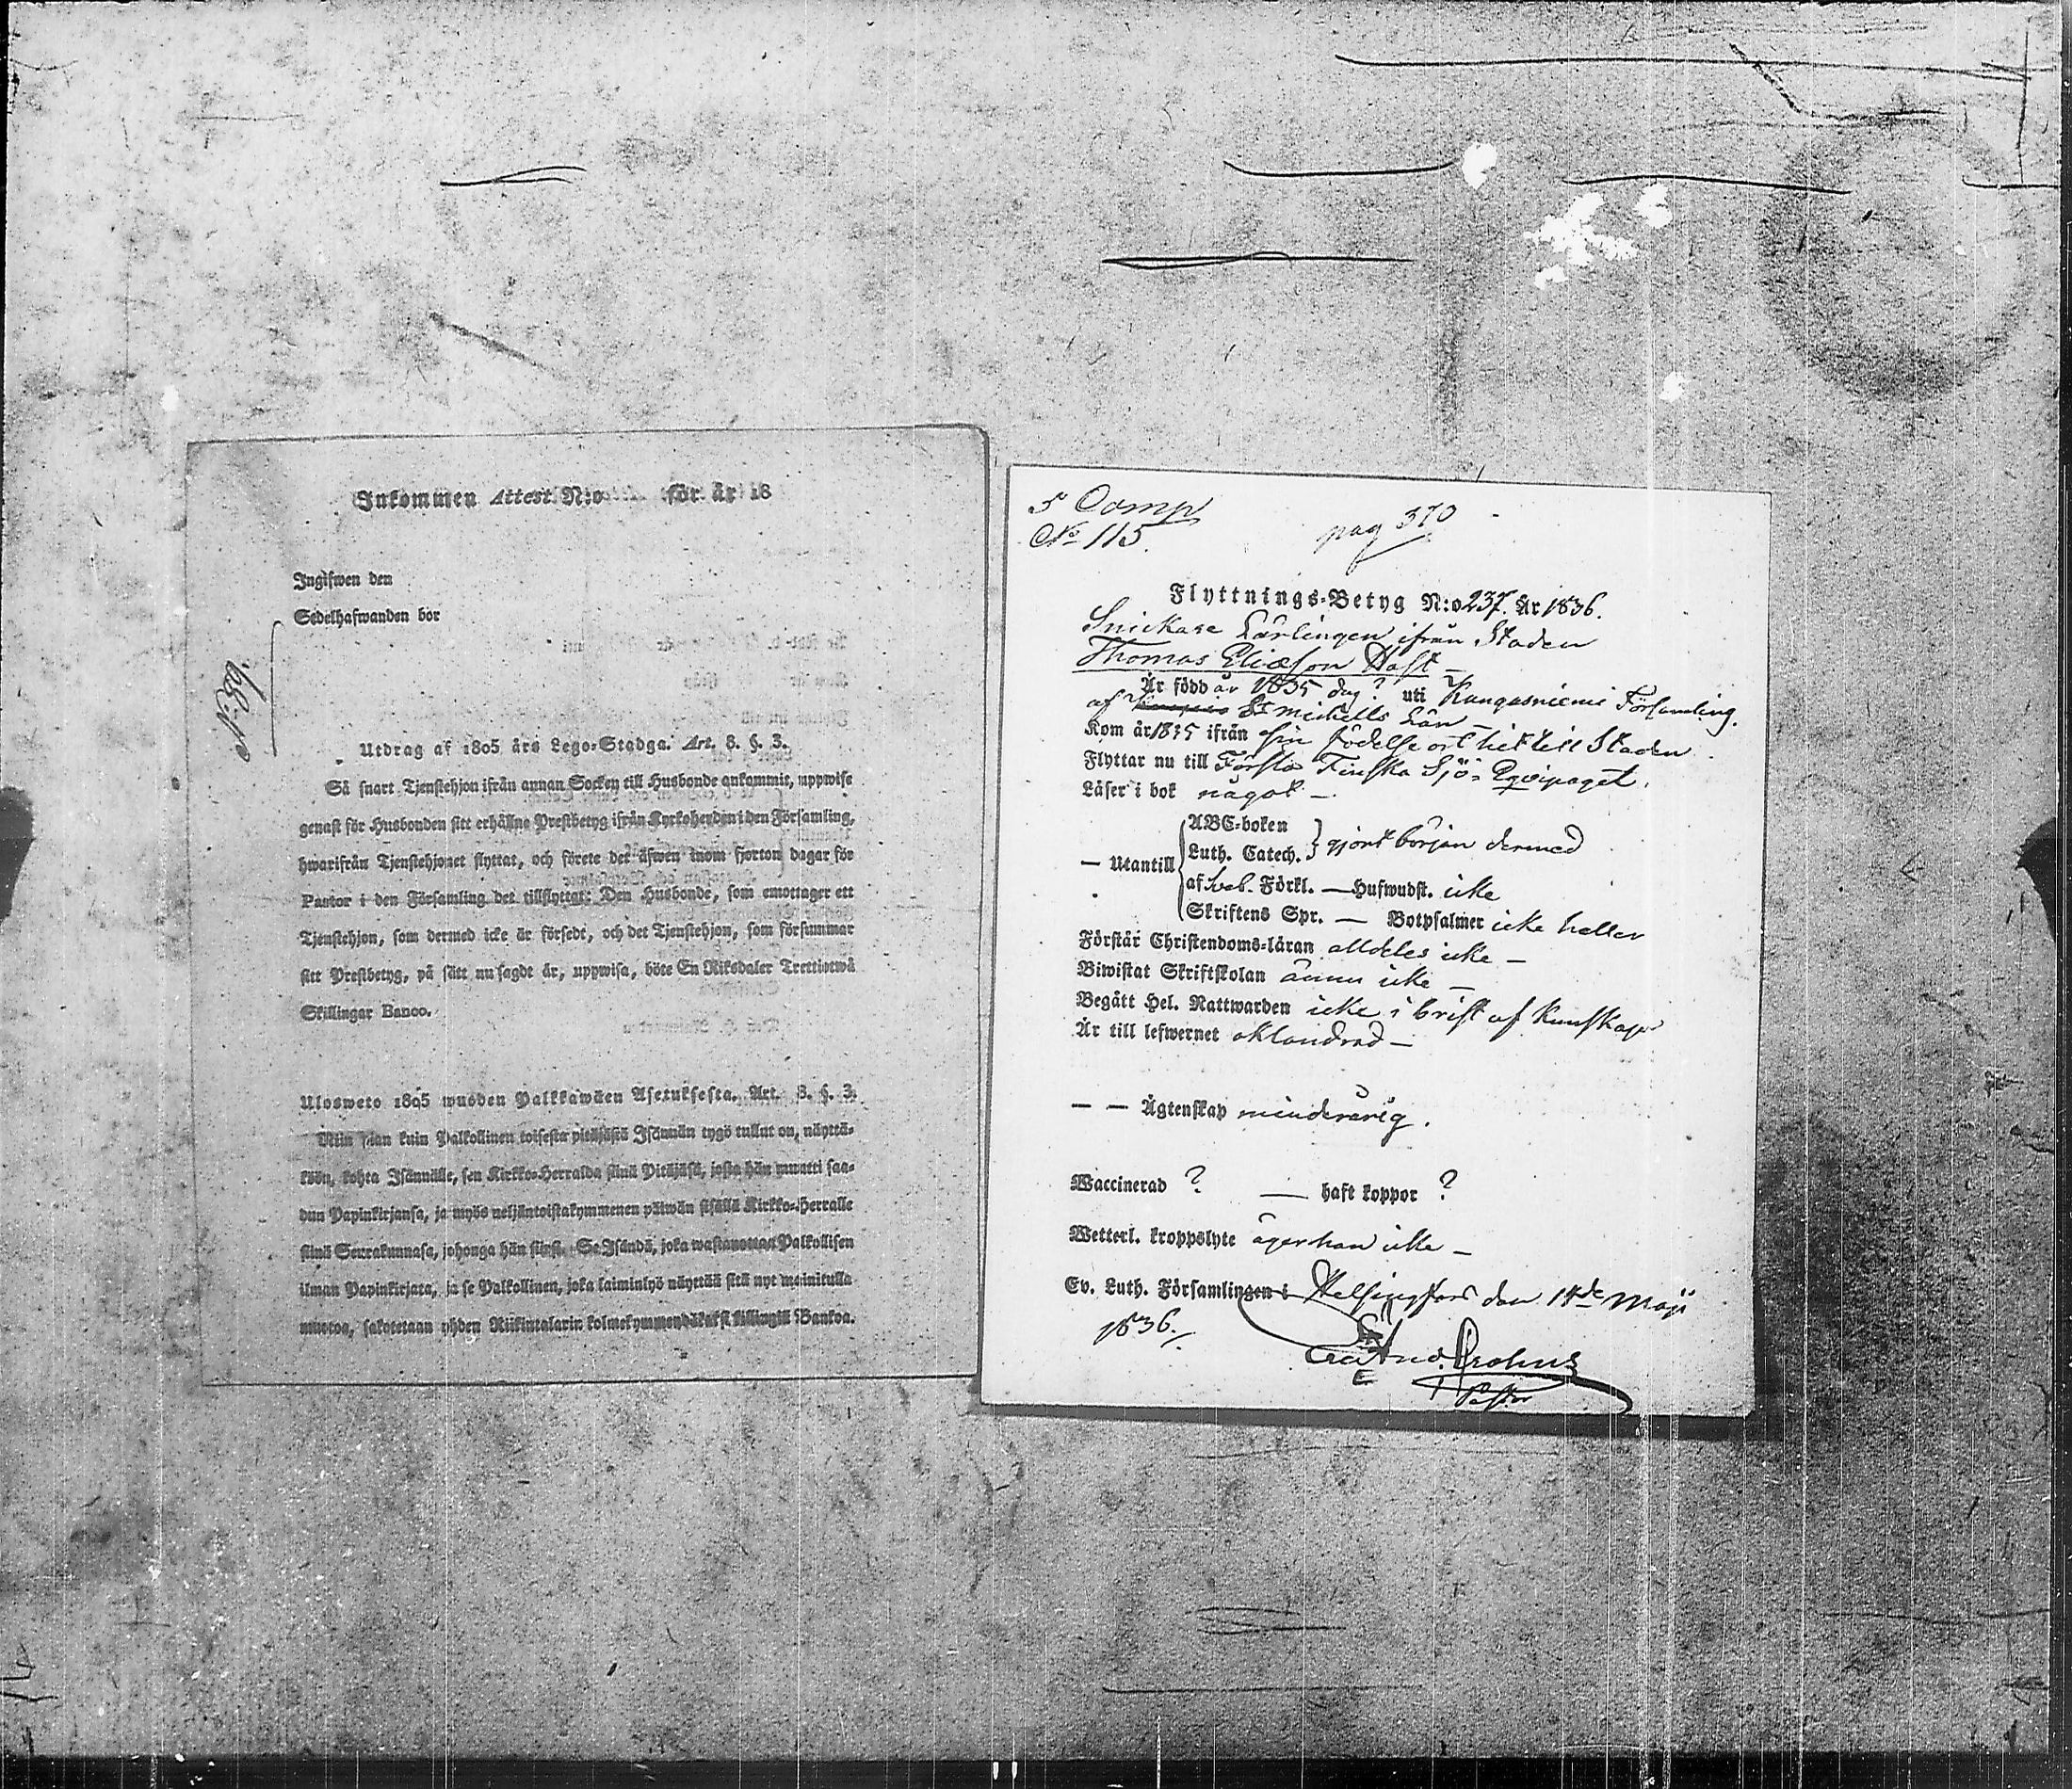 Inkommen Attest N:o för år 18
Ingifwen den
Sedelhafwanden bor
Utdrag af 1805 års Lego-Stadga. Art. 8. §. 3.
Så snart Tjenstehjon ifrån annan Socken till Husbonde ankommit, uppwise
genast för Husbonden sitt erhållne Prestbetyg ifrån Kyrkoherden i den Församling,
hwarifrån Tjenstehjonet flyttat, och förete det äfwen inom fjorton dagar för
Pastor i den Församling det tillflyttat: Den Husbonde, som emottager ett
Tjenstehjon, som dermed icke är försedt, och det Tjenstehjon, som försummar
sitt Prestbetyg, på sätt nu sagdt är, uppwisa, böte En Riksdaler Trettiotwå
Skillingar Banco.
Ulosweto 1805 wuoden Palkkawäen Asetuksesta. Art. 8. §. 3.
Niin pian kuin Palkollinen toisesta pitäjästä Isännän tygö tullut on, näyttä-
köön, kohta Isännälle, sen Kirkko-Herralda siinä Pitäjäsä, josta hän muutti saa-
dun Papinkirjansa, ja myös neljäntoistakymmenen päiwän sisällä Kirkko-Herralle
siinä Seurakunnasa, johonga hän siirsi. Se Isändä, joka wastanottaa Palkollisen
ilman Papinkirjata, ja se Palkollinen, joka laiminlyö näyttää sitä nyt mainitulla
muotoa, sakotetaan yhden Riikintalarin kolmekymmendäkaksi killingiä Bankoa.
5 Comp
No 115.
pag 370
Flyttnings-Betyg N:o 237. År 1836.
Snickare Lärlingen ifrån Staden
Thomas Eliæson Hast
Är född år dag? uti Kangasniemi Församling.
af St Michells Län
Kom år 1835 ifrån sin födelse ort hit till Staden
Flyttar nu till Första Finska Sjö-Eqvipaget.
Läser i bok något —
ABC-boken
— Utantill Luth. Catech. } gjort början dermed
af Förkl. — Hufwudst. icke
Skriftens Spr. — Botpsalmer icke heller
Förstår Christendoms-läran alldeles icke —
Biwistat Skriftskolan ännu icke —
Begått Hel. Nattwarden icke i brist af kunskap
Är till lefwernet oklandrad —
— — Ägtenskap minderårig.
Waccinerad ? — haft koppor ?
Wetterl. kroppslyte äger han icke —
Ev. Luth. Församlingen i Helsingfors den Maji
1836.
Crohns
Pastor